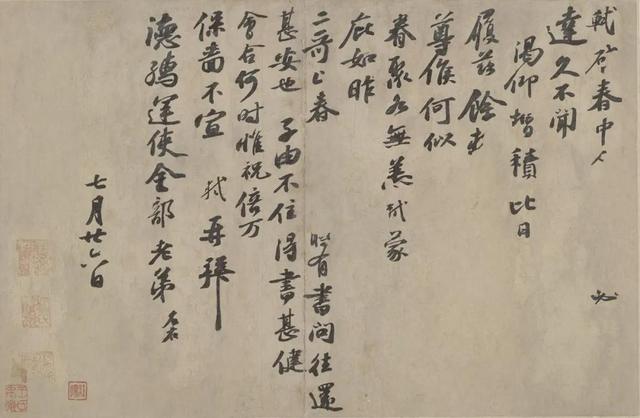 軾啓春中 必
達久不聞
渴仰增積比日
履茲餘
尊候何似
眷聚各無恙軾蒙
庇如昨
二哥上春 有書問往還
甚安也 子由不住得書甚健
會合何時惟祝倍万
保嗇不宣 軾再拜
德孺運使金部老弟
七月廿六日